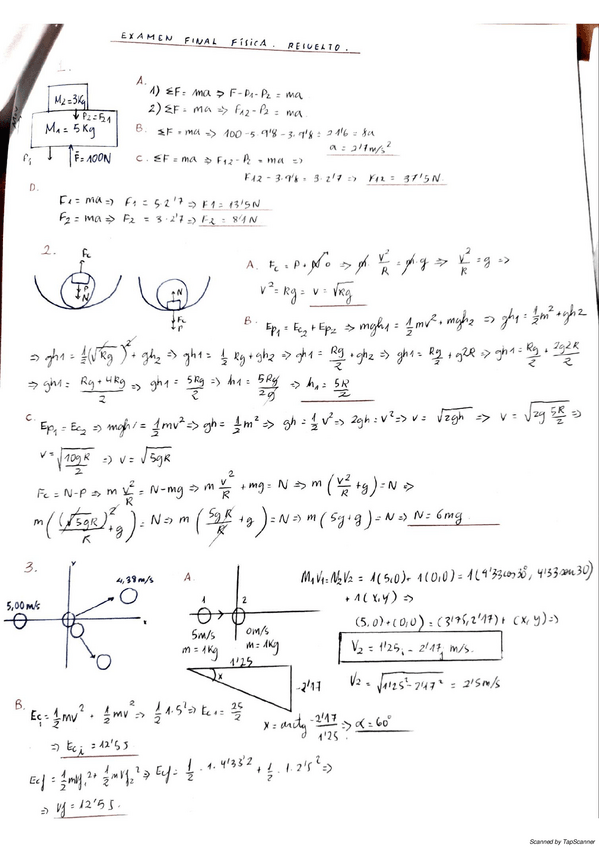 EXAMEN FINAL FÍSICA. RESUELTO.
1.
M₂=3Kg
P₂=F₂₁
M₁=5Kg
P₁
F⃗=100N
A.
1) ΣF= ma ⇒ F-P₁-P₂ = ma
2) ΣF= ma ⇒ F₁₂-P₂ = ma
B. ΣF=ma ⇒ 100-5·9'8-3·9'8= 21'6 = 8a
a = 2'7m/s²
C. ΣF=ma ⇒ F₁₂-P₂=ma ⇒
F₁₂-3·9'8 = 3·2'7 ⇒ F₁₂ = 37'5N
D.
F₁=ma ⇒ F₁=5·2'7 ⇒ F₁=13'5N
F₂=ma ⇒ F₂=3·2'7 ⇒ F₂=8'1N
2.
Fc
P
N
N
Fc
P
A. Fc=P+N⁰ ⇒ m·v²/R = m·g ⇒ v²/R = g ⇒
v²=Rg = v=√Rg
B. Ep₁=Ec₂+Ep₂ ⇒ mgh₁=½mv²+mgh₂ ⇒ gh₁=½m²+gh₂
⇒ gh₁=½(√Rg)²+gh₂ ⇒ gh₁=½Rg+gh₂ ⇒ gh₁=Rg/2+gh₂ ⇒ gh₁=Rg/2+g2R ⇒ gh₁=Rg/2+2g2R/2
⇒ gh₁=Rg+4Rg/2 ⇒ gh₁=5Rg/2 ⇒ h₁=5Rg/2g ⇒ h₁=5R/2
C. Ep₁=Ec₂ ⇒ mgh₁=½mv² ⇒ gh=½m² ⇒ gh=½v² ⇒ 2gh=v² ⇒ v=√2gh ⇒ v=√2g5R/2 ⇒
v=√10gR/2 ⇒ v=√5gR
Fc=N-P ⇒ m v²/R = N-mg ⇒ m v²/R + mg = N ⇒ m(v²/R+g)=N ⇒
m((√5gR)²/R+g)=N ⇒ m(5gR/R+g)=N ⇒ m(5g+g)=N ⇒ N=6mg
3.
Y
4,33 m/s
5,00 m/s
x
A.
1
2
5m/s
m=1Kg
0m/s
m=1Kg
M₁V₁=M₂V₂ = 1(5,0)+1(0,0)=1(4'33cos30°, 4'33sen30)
+1(x,y) ⇒
(5,0)+(0,0)=(3'75,2'17)+(x,y) ⇒
V₂ = 1'25i - 2'17j m/s.
V₂ = √1'25²-2'17² = 2'5m/s
1'25
x
-2'17
x=arctg -2'17/1'25 ⇒ α=60°
B.
Eci=½mv²+½mv² ⇒ ½1·5² ⇒ Ec₁=25/2
⇒ Eci=12'5J
Ecf=½mv₁²+½mv₂² ⇒ Ecf=½·1·4'33²+½·1·2'5² ⇒
⇒ Vf=12'5J.
Scanned by TapScanner